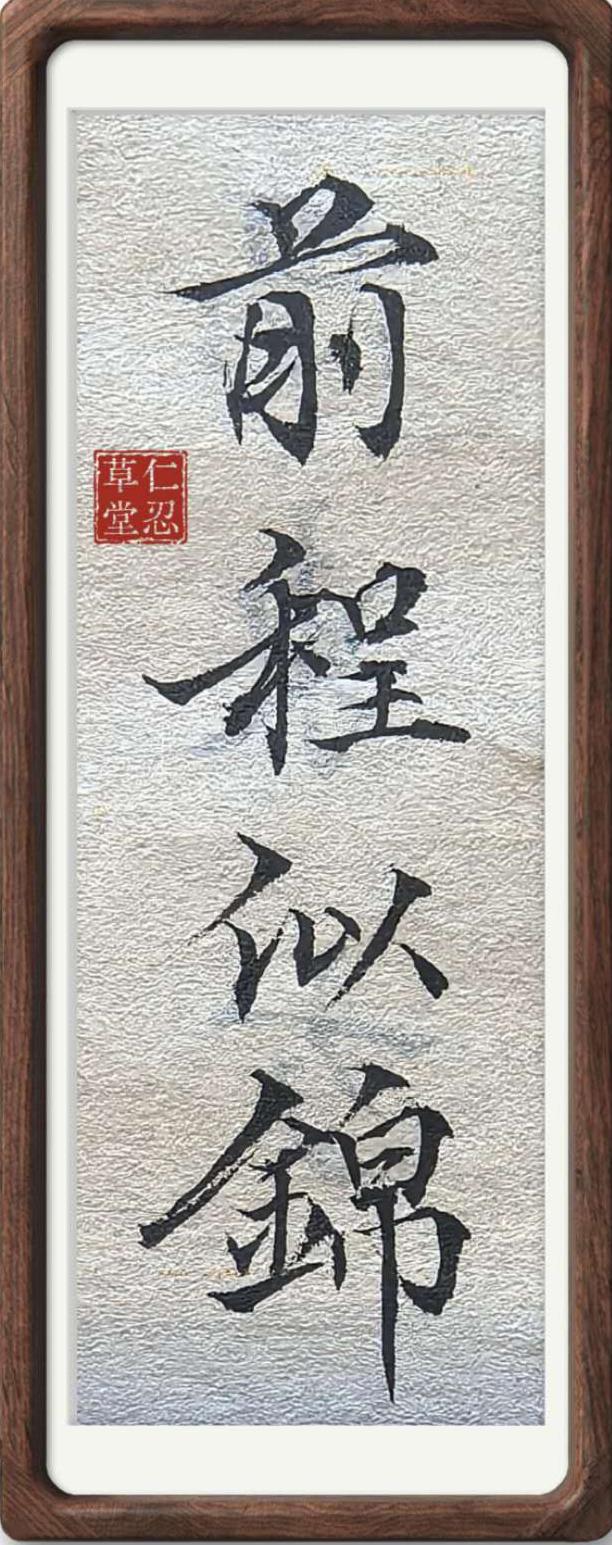 前程似錦
仁忍
草堂